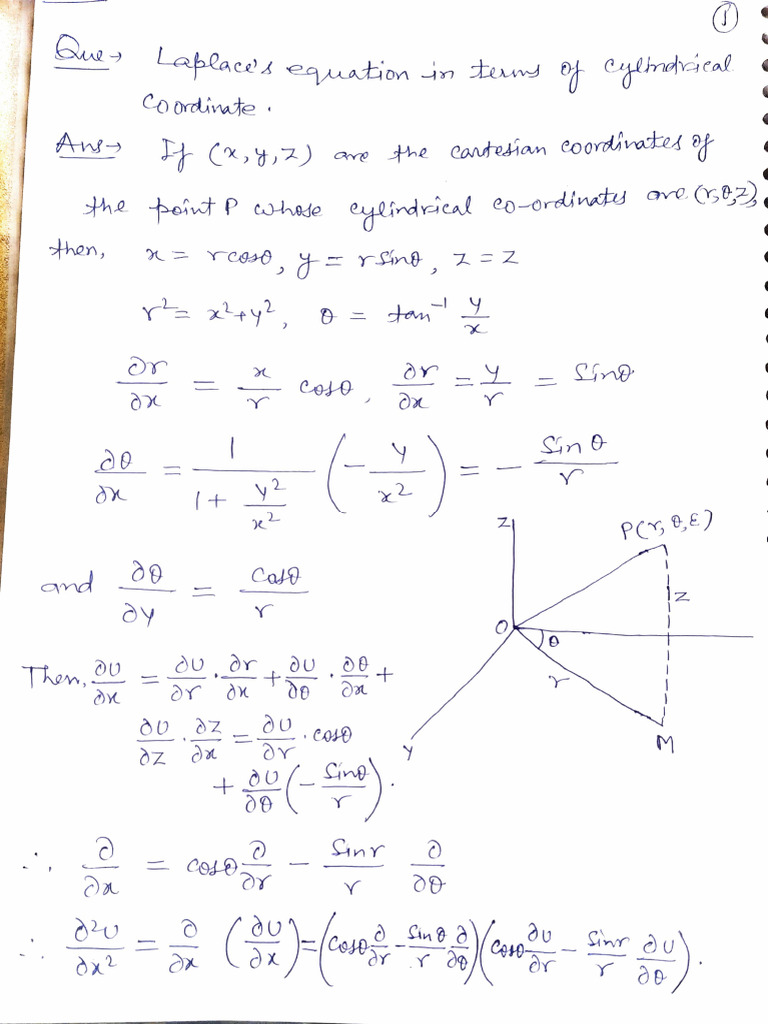 ①
Que→ Laplace's equation in terms of cylindrical
Coordinate.
Ans→ If (x, y, z) are the cartesian coordinates of
the point P whose cylindrical co-ordinates are (r,θ,z),
then, x = r cosθ, y = r sinθ, z = z
r² = x²+y², θ = tan⁻¹ y/x
∂r/∂x = x/r cosθ, ∂r/∂x = y/r = Sinθ
∂θ/∂x = 1/(1 + y²/x²) (- y/x²) = - Sinθ/r
Z
P(r, θ, Ɛ)
and ∂θ/∂y = Cosθ/r
z
O
θ
r
M
Y
Then, ∂U/∂x = ∂U/∂r · ∂r/∂x + ∂U/∂θ · ∂θ/∂x +
∂U/∂z · ∂z/∂x = ∂U/∂r · cosθ
+ ∂U/∂θ (- Sinθ/r).
∴ ∂/∂x = cosθ ∂/∂r - Sinr/r ∂/∂θ
∴ ∂²U/∂x² = ∂/∂x (∂U/∂x) = (cosθ ∂/∂r - Sinθ/r ∂/∂θ)(cosθ ∂U/∂r - Sinr/r ∂U/∂θ).